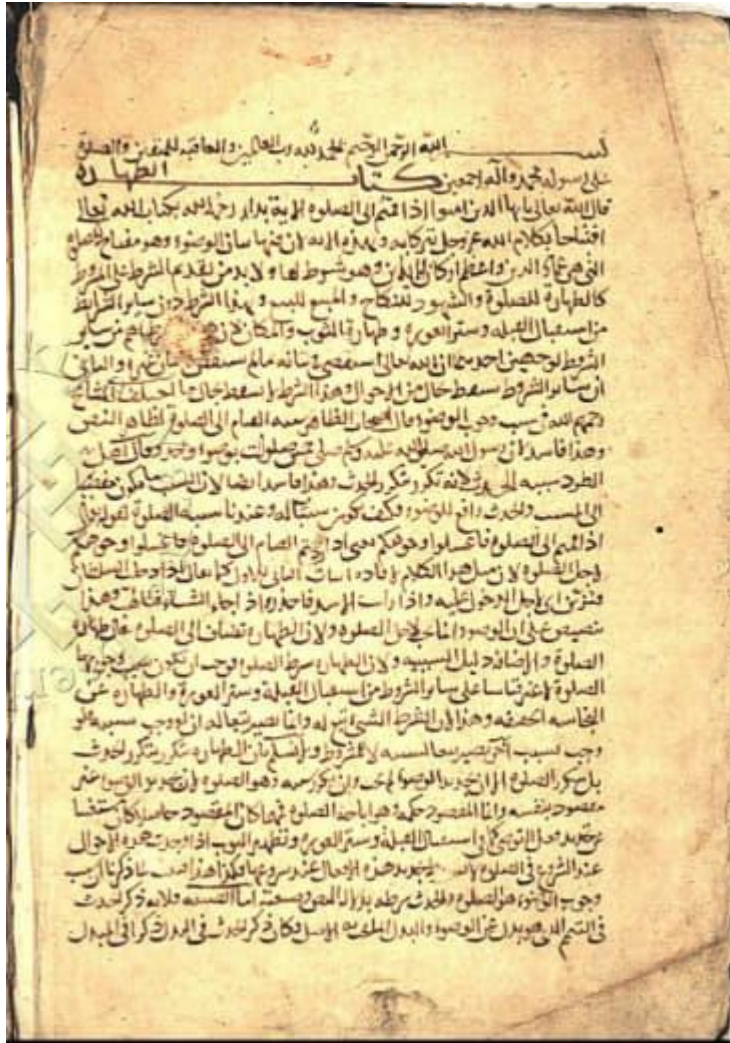 بسم الله الرحمن الرحيم الحمد لله رب العالمين والعاقبة للمتقين والصلوة
على رسوله محمد وآله اجمعين كتاب الطهارة
قال الله تعالى يا ايها الذين امنوا اذا قمتم الى الصلوة الاية بدا رحمه الله بكتاب الله تعالى
افتتاحا بكلام الله عز وجل تبركا به وبهذه الاية لان فيها بيان الوضوء وهو مفتاح الصلوة
التي هي عماد الدين واعظم اركان الدين وهو شروط لها ولا بد من تقديم الشرط على المشروط
كالطهارة للصلوة والشهود للنكاح وبهذا الشرط دون سائر الشرائط
من استقبال القبلة وستر العورة وطهارة الثوب والمكان لان من سائر
الشروط لوجهين احدهما ان الله تعالى بيانه ما لم غيرها والثاني
ان سائر الشروط يسقط حال من الاحوال وهذا الشرط لا يسقط بحال ما اختلف المشايخ
رحمهم الله في سبب وجوب الوضوء قال اصحاب الظاهر سببه القيام الى الصلوة لظاهر النص
وهذا فاسد لان رسول الله صلى الله عليه وسلم صلى خمس صلوات بوضوء واحد وقال اهل
الطرد سببه الحدث لانه تكرر بتكرر الحدث وهذا فاسد ايضا لان السبب ما يكون مفضيا
الى المسبب والحدث رافع للوضوء وكيف يكون سببا له وعندنا سببه الصلوة لقوله تعالى
اذا قمتم الى الصلوة فاغسلوا وجوهكم يعني اذا اردتم القيام الى الصلوة فاغسلوا وجوهكم
لاجل الصلوة لان مثل هذا الكلام لافادة اثبات الثاني للاول كما يقال اذا دخلت على السلطان
فتزين اي لاجل الدخول عليه واذا رايت الاسد فاحذره اذا جاء الشتاء وهذا
تنصيص على ان الوضوء لاجل الصلوة ولان الطهارة تضاف الى الصلوة يقال طهارة
الصلوة والاضافة دليل السببية ولان الطهارة شرط الصلوة فوجب ان يكون سبب وجوبها
الصلوة لا غير قياسا على سائر الشروط من استقبال القبلة وستر العورة والطهارة عن
النجاسة الحقيقية وهذا لان شرط الشيء تبع له وانما يصير تبعا له ان لو وجب بسببه فلو
وجب بسبب آخر يصير تبعا لسببه لا للمشروط ولا نسلم بان الطهارة تتكرر بتكرر الحدث
بل بتكرر الصلوة الا ان تجديد الوضوء لم يجب وان تكرر سببه وهو الصلوة لان تجديد الوضوء غير
مقصود بنفسه وانما المقصود حكمه وهو اباحة الصلوة فمهما كان المقصود حاصلا كان مستغنيا
عن تجديد فعل التوضي كما في استقبال القبلة وستر العورة وتطهير الثوب اذا وجدت هذه الاحوال
عند الشروع في الصلوة تجديد هذه الافعال عند شروعها وكذا هذا ما ذكرنا ان سبب
وجوب الوضوء هو الصلوة والحدث شرطه بدلالة النص وصيغته اما الصيغة فلانه ذكر الحدث
في التيمم الذي هو بدل عن الوضوء والبدل الاصل فكان ذكر الحدث في البدل ذكرا في المبدل